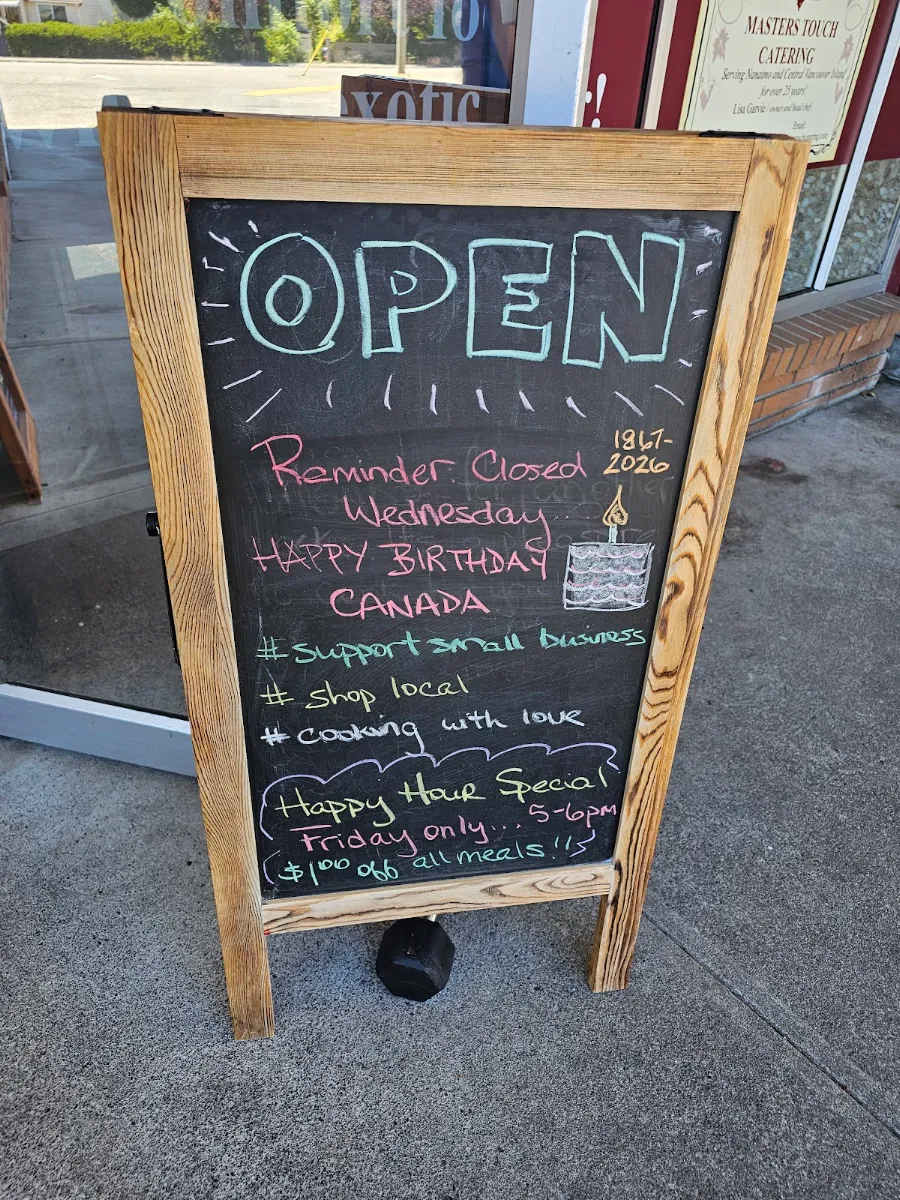 exotic
MASTERS TOUCH
CATERING
Serving Nanaimo and Central Vancouver Island
for over 25 years!
Lisa Garvic / owner and head chef
Email
OPEN
1867-
2026
Reminder: Closed
Wednesday...
HAPPY BIRTHDAY
CANADA
#support small business
# shop local
# cooking with love
Happy Hour Special
Friday only... 5-6pm
$1.00 off all meals!!